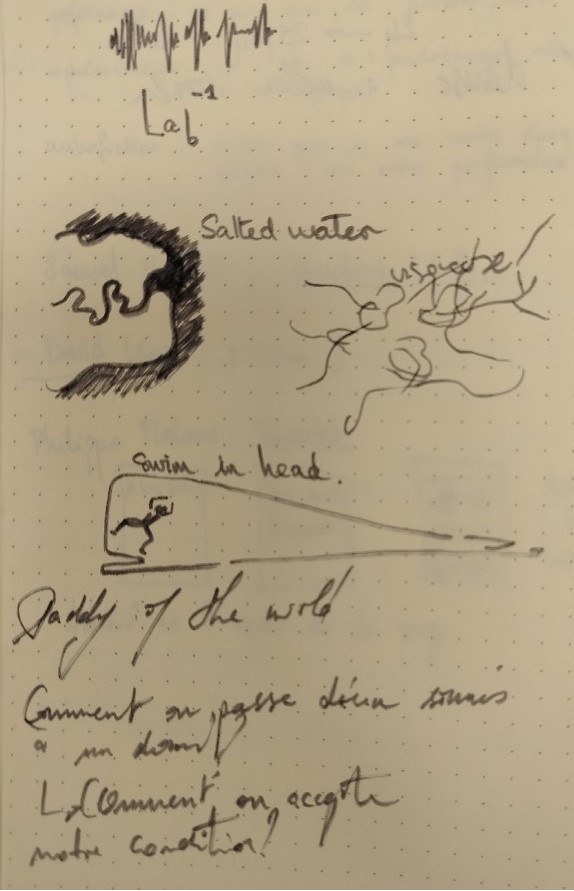 Lab⁻¹
Salted water
visqueuse
Swim in head.
Daddy of the world
Comment on passe d'écran soumis
a un domi
L, Comment on accepte
notre condition?